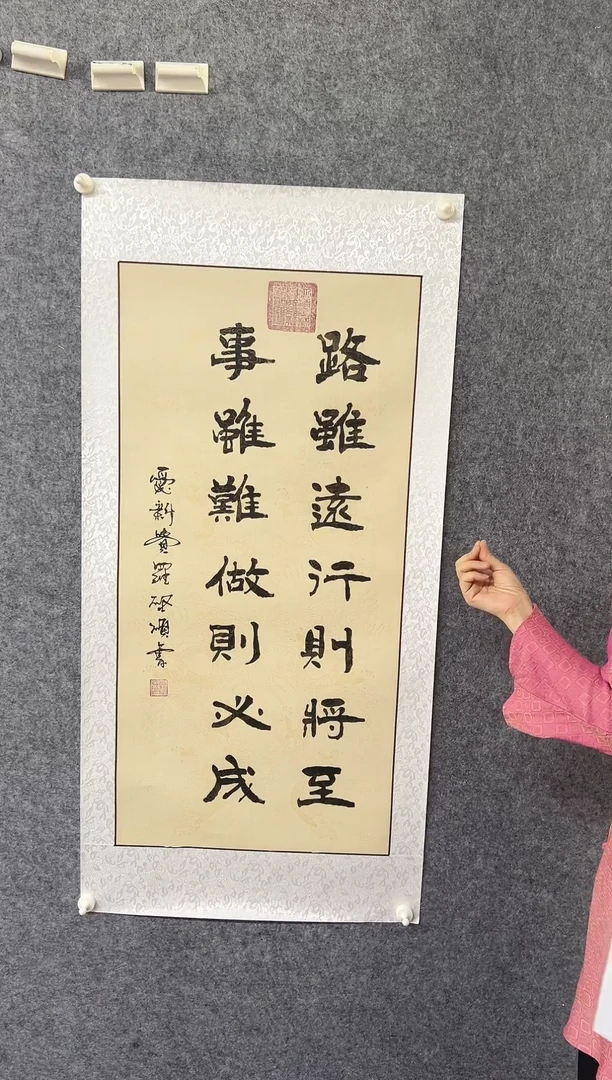 路雖遠行則將至
事雖難做則必成
愛新覺羅啓頌書